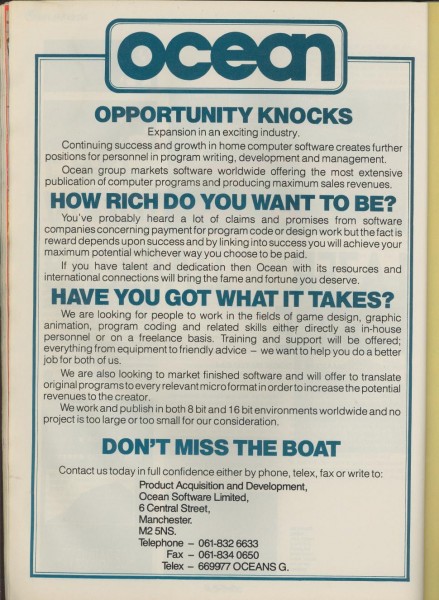 ocean
OPPORTUNITY KNOCKS
Expansion in an exciting industry.
Continuing success and growth in home computer software creates further
positions for personnel in program writing, development and management.
Ocean group markets software worldwide offering the most extensive
publication of computer programs and producing maximum sales revenues.
HOW RICH DO YOU WANT TO BE?
You've probably heard a lot of claims and promises from software
companies concerning payment for program code or design work but the fact is
reward depends upon success and by linking into success you will achieve your
maximum potential whichever way you choose to be paid.
If you have talent and dedication then Ocean with its resources and
international connections will bring the fame and fortune you deserve.
HAVE YOU GOT WHAT IT TAKES?
We are looking for people to work in the fields of game design, graphic
animation, program coding and related skills either directly as in-house
personnel or on a freelance basis. Training and support will be offered;
everything from equipment to friendly advice – we want to help you do a better
job for both of us.
We are also looking to market finished software and will offer to translate
original programs to every relevant micro format in order to increase the potential
revenues to the creator.
We work and publish in both 8 bit and 16 bit environments worldwide and no
project is too large or too small for our consideration.
DON'T MISS THE BOAT
Contact us today in full confidence either by phone, telex, fax or write to:
Product Acquisition and Development,
Ocean Software Limited,
6 Central Street,
Manchester.
M2 5NS.
Telephone – 061-832 6633
Fax – 061-834 0650
Telex – 669977 OCEANS G.